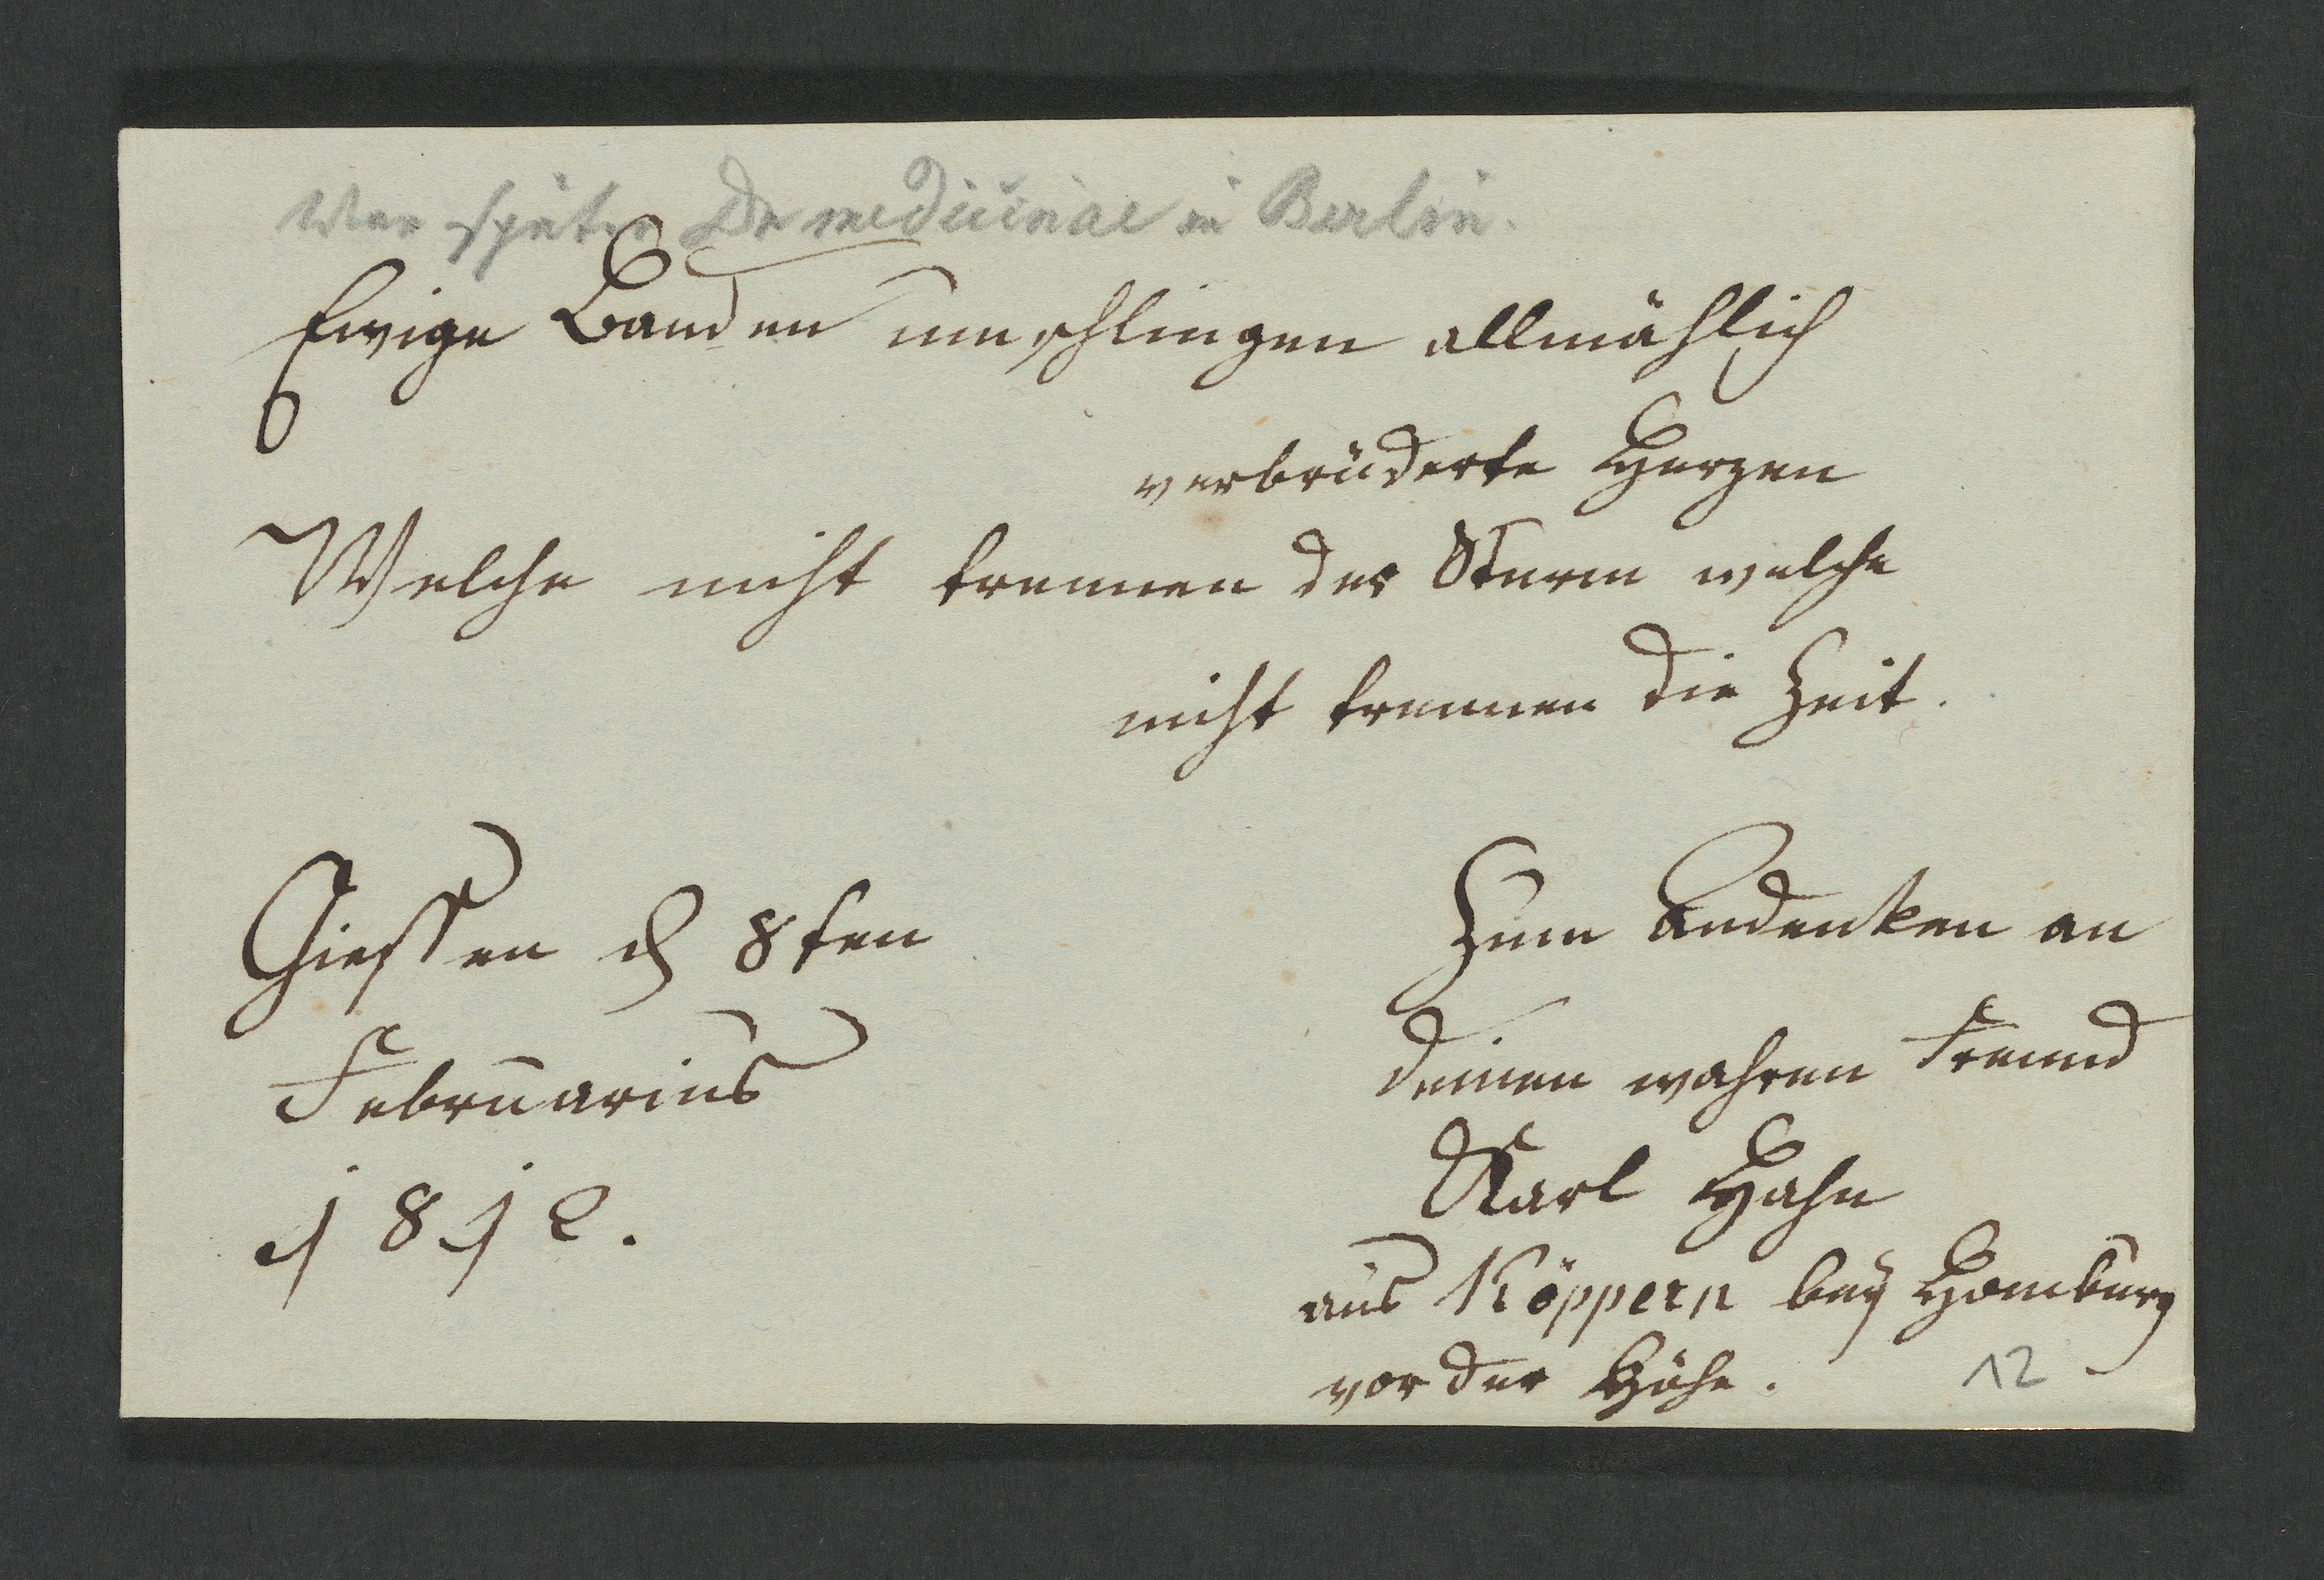 War später Dr medicinae in Berlin.
Ewige Banden umschlingen allmählich
verbrüderte Herzen
Welche nicht trennen der Sturm welche
nicht trennen die Zeit.
Giessen d 8ten
Februarius
1812.
Zum Andenken an
deinen wahren Freund
Karl Hahn
aus Köppern bey Homburg
vor der Höhe.
12